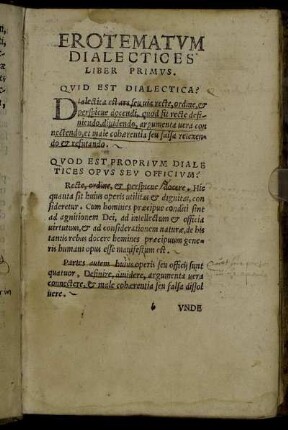 EROTEMATVM
DIALECTICES
LIBER PRIMVS.
QVID EST DIALECTICA?
Dialectica est ars, seu uia recte, ordine, &
perspicue docendi, quod fit recte defi-
niendo, diuidendo, argumenta uera con
nectendo, et male coherentia seu falsa retexen-
do & refutando.
QVOD EST PROPRIVM DIALE
TICES OPVS SEV OFFICIVM?
Recte, ordine, & perspicue docere. Hic
quanta sit huius operis utilitas & dignitas, con
sideretur. Cum homines præcipue conditi sint
ad agnitionem Dei, ad intellectum & officia
uirtutum, & ad considerationem naturæ, de his
tantis rebus docere homines præcipuum gene-
ris humani opus esse manifestum est.
Partes autem huius operis seu officij sunt
quatuor. Definire, diuidere, argumenta uera
connectere, & male coherentia seu falsa dissol
uere.
VNDE